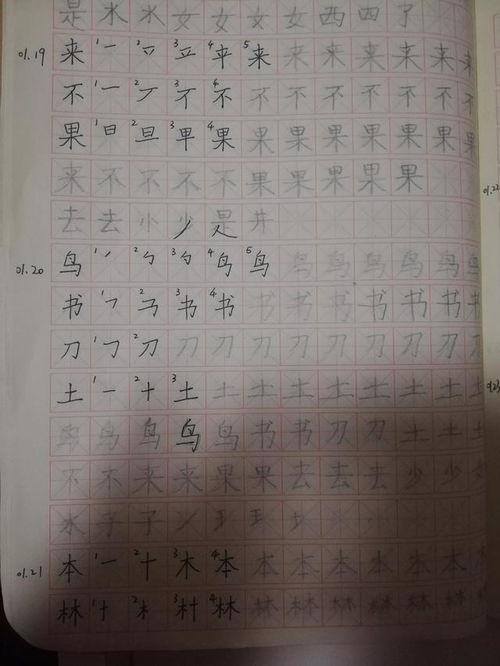 是 水 水 女 女 女 女 西 四 了
01.19 来 1 一 2 3 4 5 来 来 来 来 来 来 来
不 1 一 2 丆 3 4 不 不 不 不 不 不 不 不
果 1 日 2 旦 3 早 4 果 果 果 果 果 果 果 果
来 不 不 不 不 果 果 果 果 果
去 去 小 少 是 井
01.20 鸟 1 ノ 2 3 4 5 鸟 鸟 鸟 鸟 鸟 鸟 鸟
书 1 2 3 书 4 书 书 书 书 书 书 书 书
刀 1 2 刀 刀 刀 刀 刀 刀 刀 刀 刀
土 1 一 2 十 3 土 土 土 土 土 土 土 土
鸟 鸟 鸟 鸟 鸟 书 书 刀 刀 土 土
不 不 来 来 果 果 去 去 去 少 少
水 子 子
01.21 本 1 一 2 十 3 木 4 本 本 本 本 本 本 本
林 1 2 3 4 林 林 林 林 林 林 林
01.22
01.23